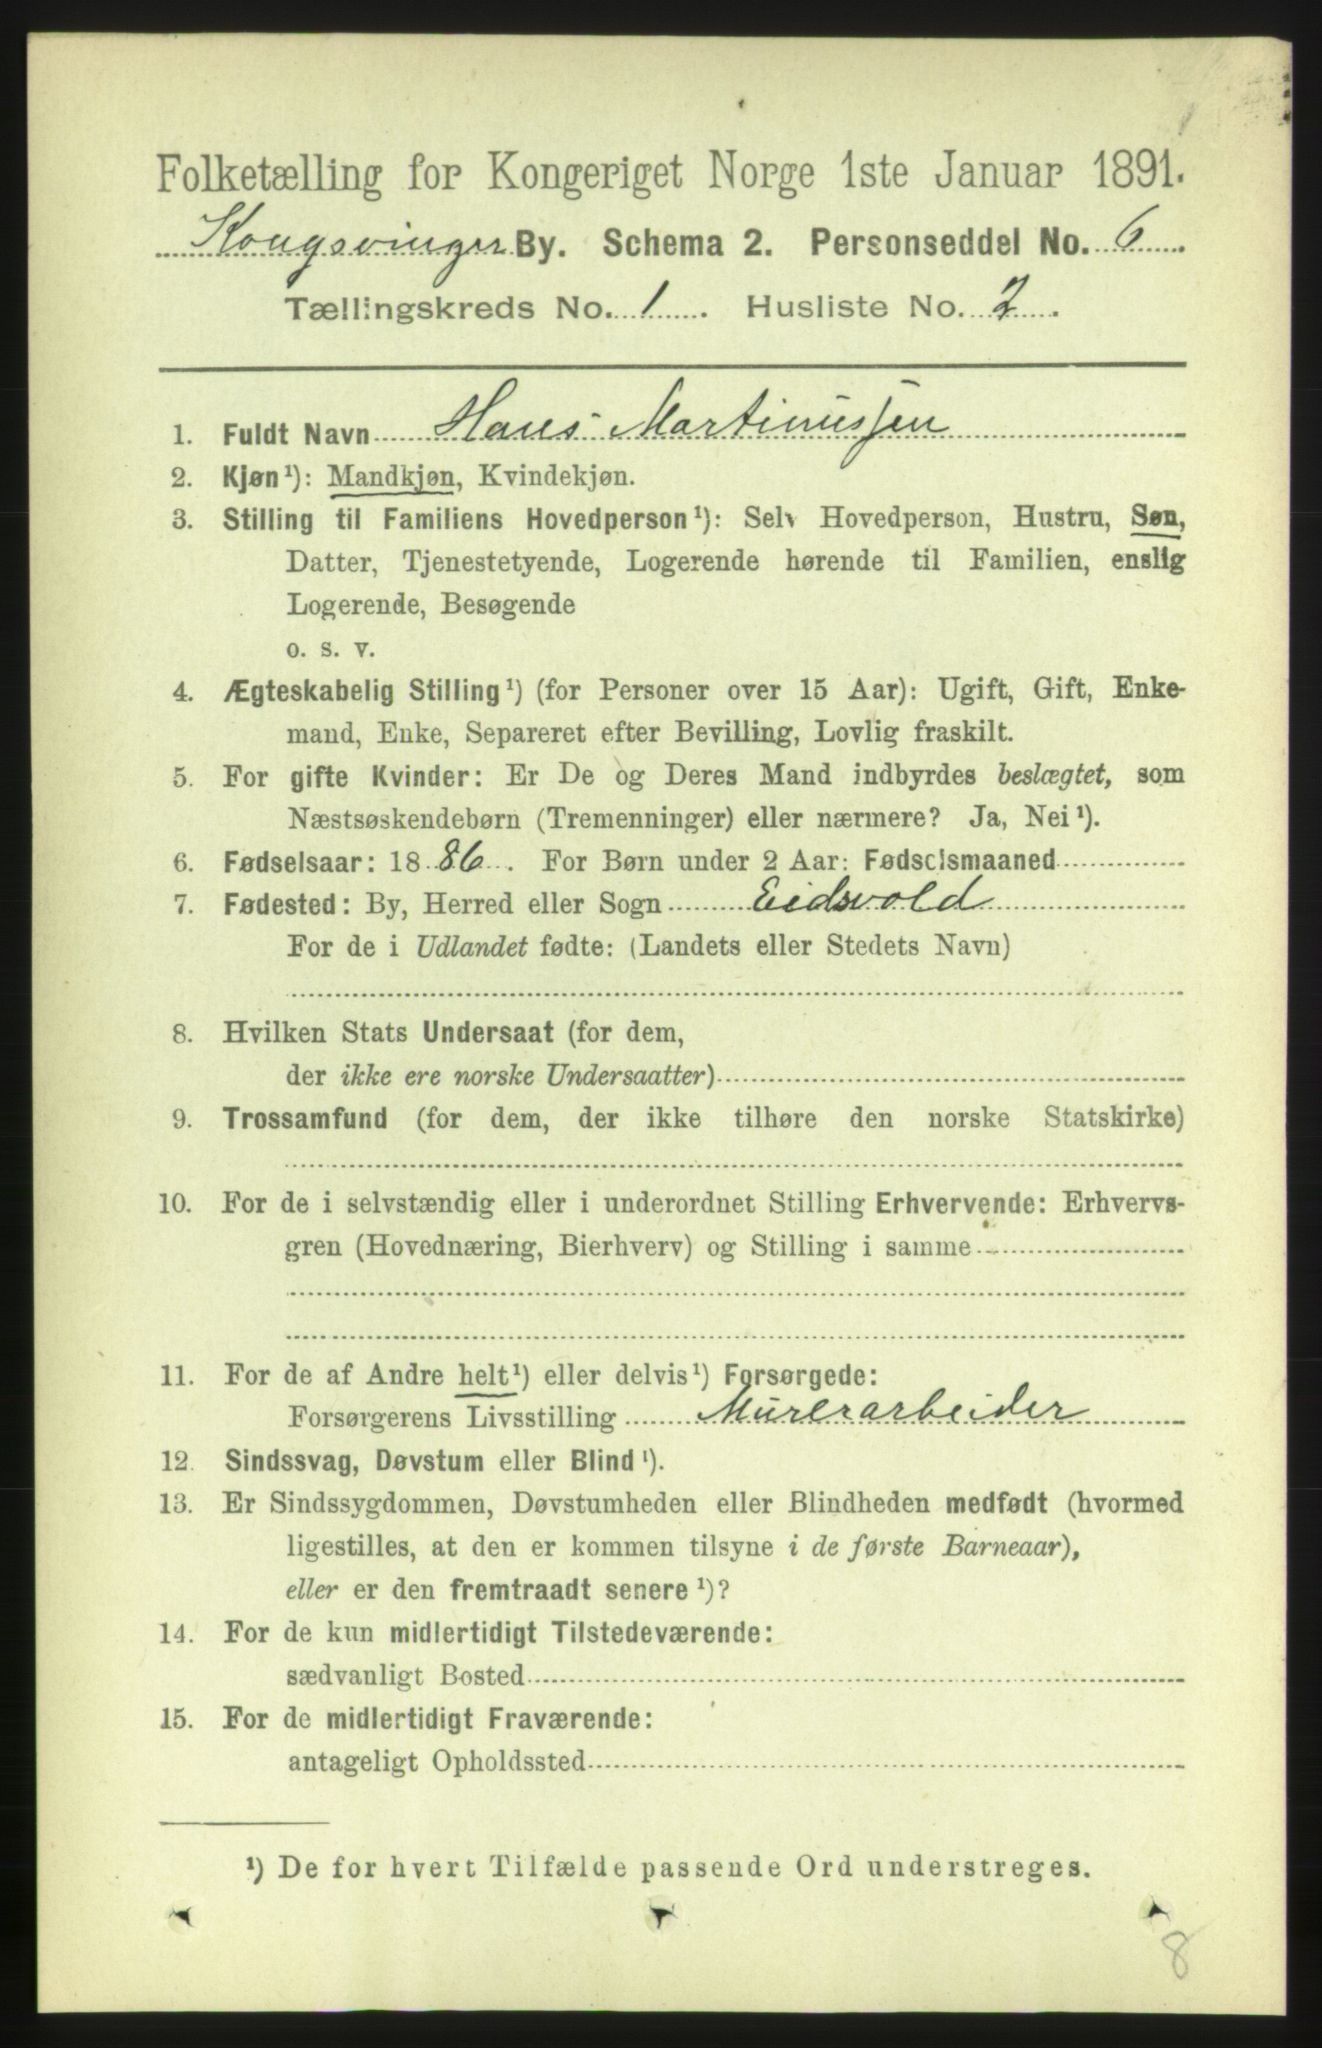 Folketælling for Kongeriget Norge 1ste Januar 1891.
Kongsvinger By. Schema 2. Personseddel No. 6
Tællingskreds No. 1. Husliste No. 2.
1. Fuldt Navn Hans Martinussen
2. Kjøn¹): Mandkjøn, Kvindekjøn.
3. Stilling til Familiens Hovedperson¹): Selv Hovedperson, Hustru, Søn,
Datter, Tjenestetyende, Logerende hørende til Familien, enslig
Logerende, Besøgende
o. s. v.
4. Ægteskabelig Stilling¹) (for Personer over 15 Aar): Ugift, Gift, Enke-
mand, Enke, Separeret efter Bevilling, Lovlig fraskilt.
5. For gifte Kvinder: Er De og Deres Mand indbyrdes beslægtet, som
Næstsøskendebørn (Tremenninger) eller nærmere? Ja, Nei¹).
6. Fødselsaar: 1886. For Børn under 2 Aar: Fødselsmaaned
7. Fødested: By, Herred eller Sogn Eidsvold
For de i Udlandet fødte: (Landets eller Stedets Navn)
8. Hvilken Stats Undersaat (for dem,
der ikke ere norske Undersaatter)
9. Trossamfund (for dem, der ikke tilhøre den norske Statskirke)
10. For de i selvstændig eller i underordnet Stilling Erhvervende: Erhvervs-
gren (Hovednæring, Bierhverv) og Stilling i samme
11. For de af Andre helt¹) eller delvis¹) Forsørgede:
Forsørgerens Livsstilling Murerarbeider
12. Sindssvag, Døvstum eller Blind¹).
13. Er Sindssygdommen, Døvstumheden eller Blindheden medfødt (hvormed
ligestilles, at den er kommen tilsyne i de første Barneaar),
eller er den fremtraadt senere¹)?
14. For de kun midlertidigt Tilstedeværende:
sædvanligt Bosted
15. For de midlertidigt Fraværende:
antageligt Opholdssted
¹) De for hvert Tilfælde passende Ord understreges.
8